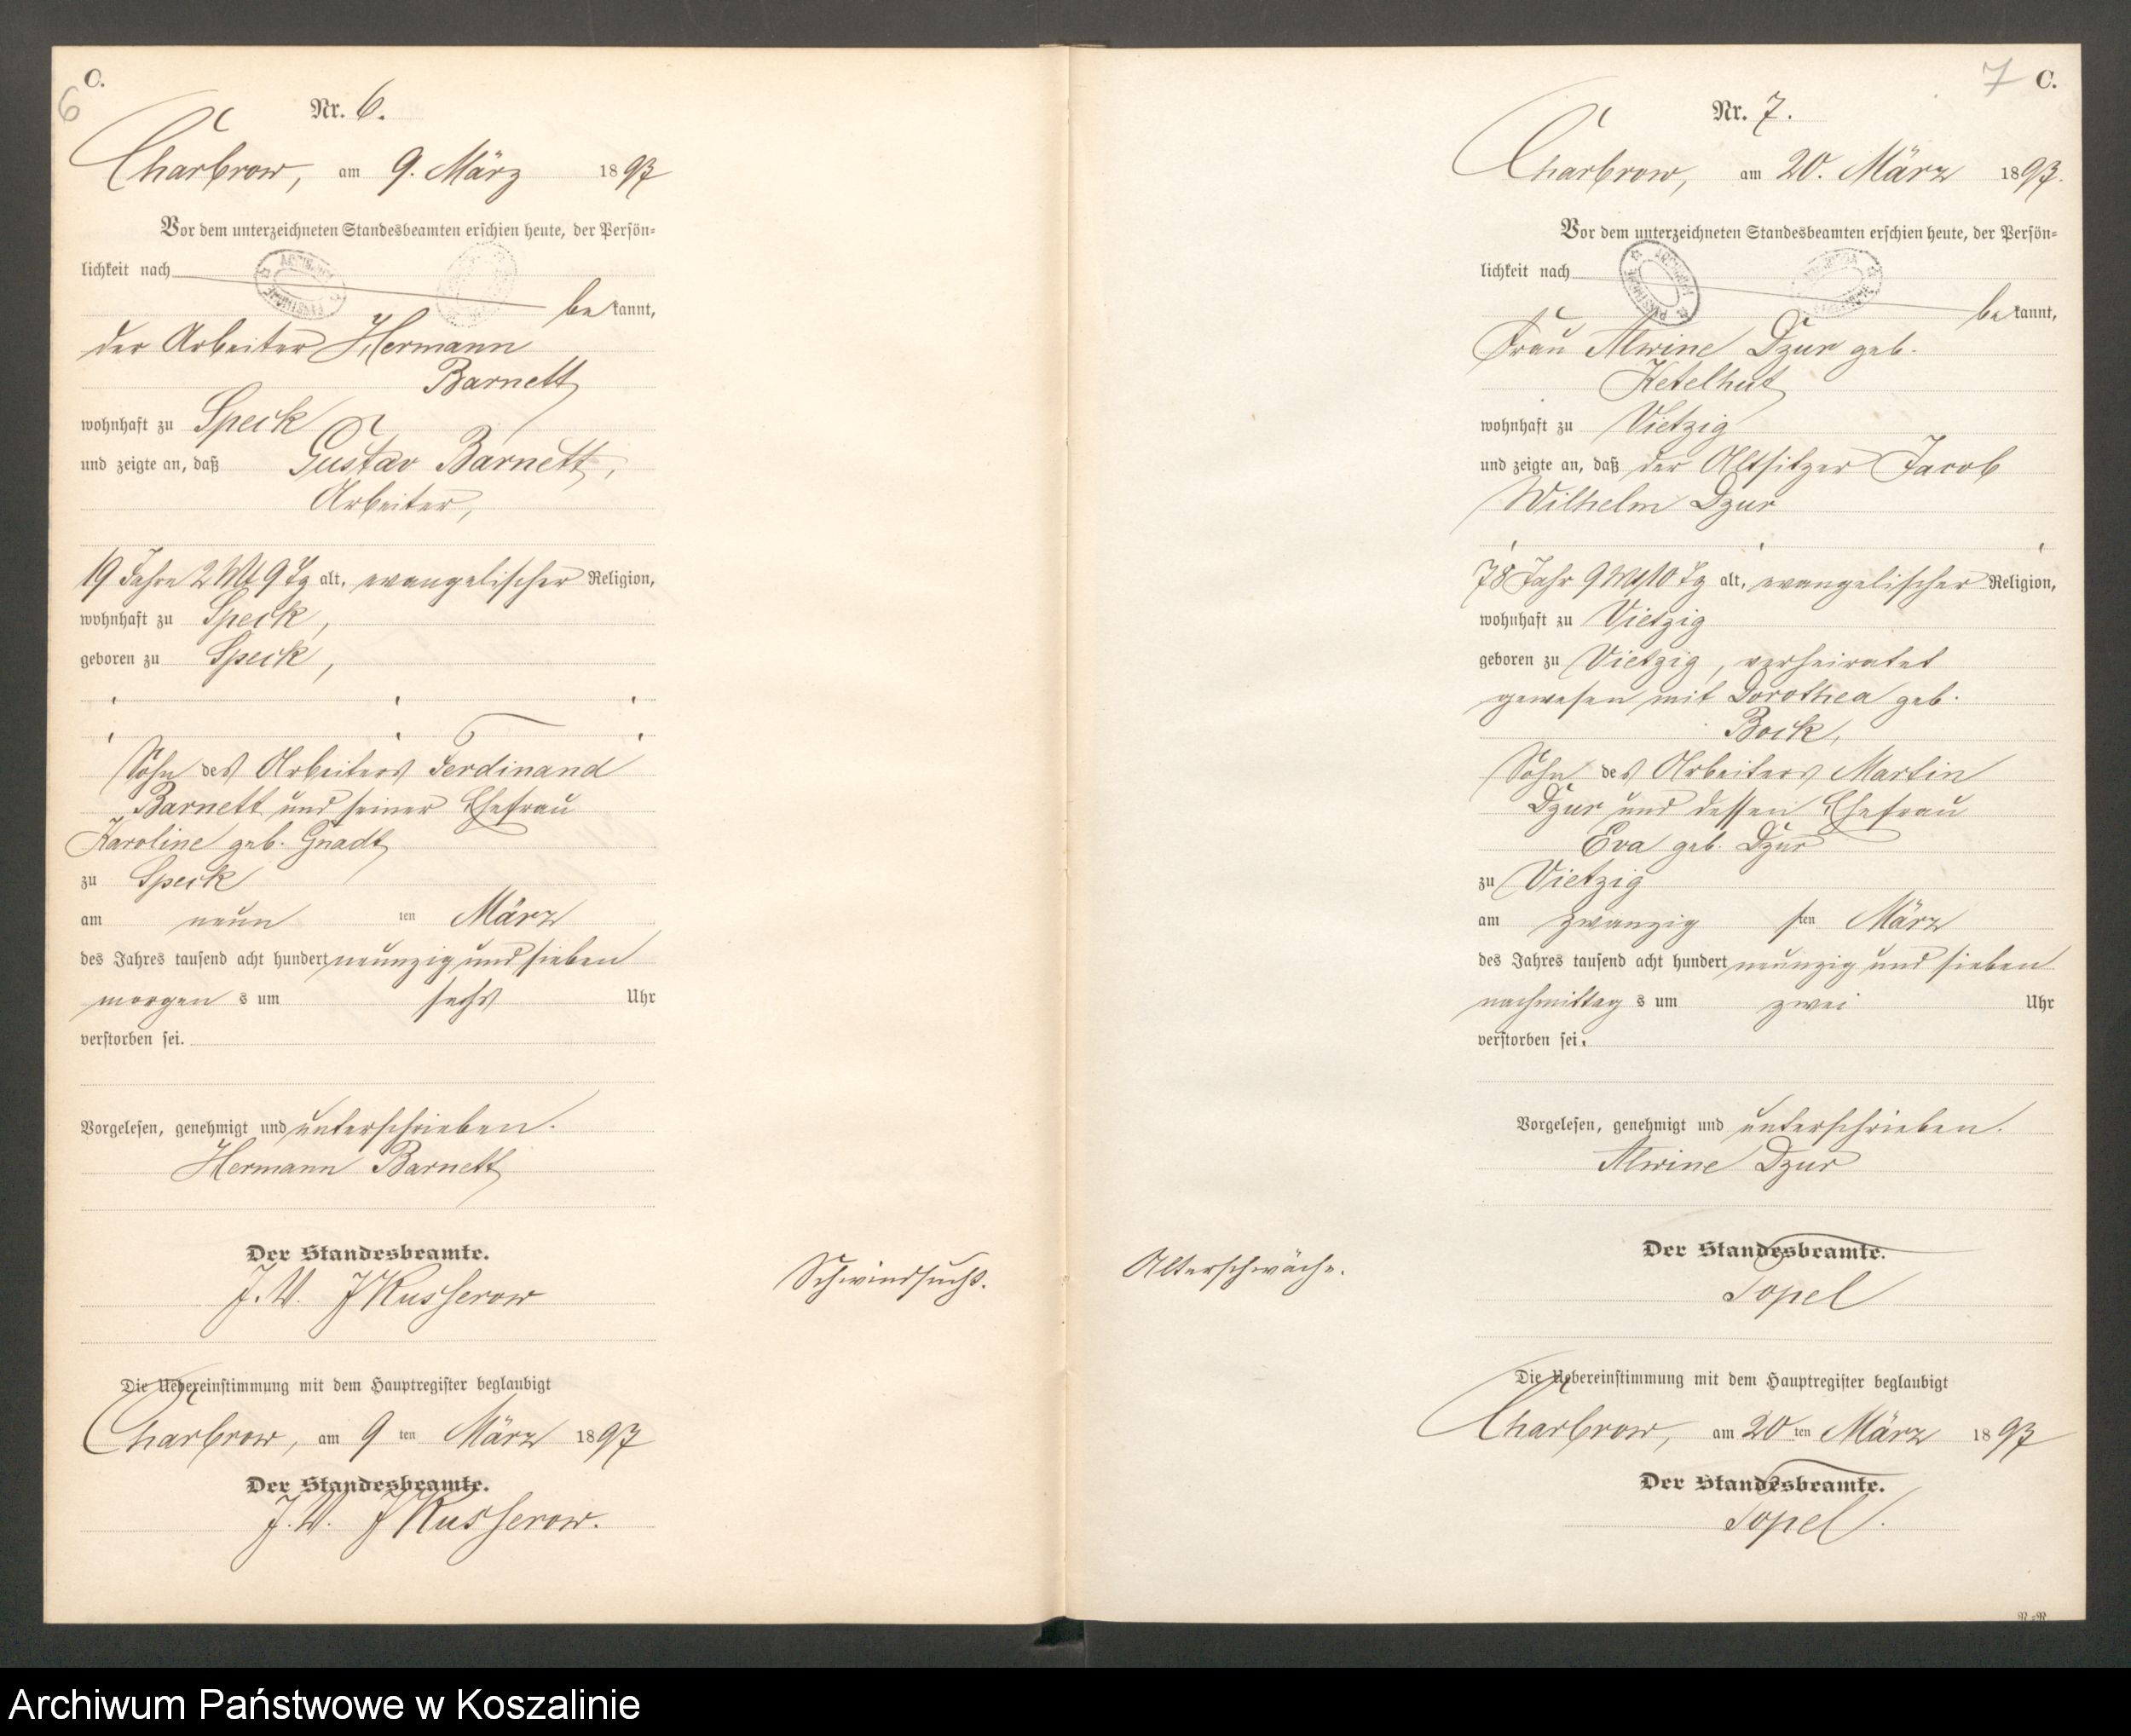 C.
6
Nr. 6.
Charbrow, am 9. März 1897
Vor dem unterzeichneten Standesbeamten erschien heute, der Persön-
lichkeit nach
bekannt,
der Arbeiter Hermann
Barnett
wohnhaft zu Speck
und zeigte an, daß Gustav Barnett,
Arbeiter,
19 Jahre 2 Mt 9 Tg alt, evangelischer Religion,
wohnhaft zu Speck,
geboren zu Speck,
Sohn des Arbeiters Ferdinand
Barnett und seiner Ehefrau
Karoline geb. Gnadt
zu Speck
am neun ten März
des Jahres tausend acht hundert neunzig und sieben
morgen s um sechs Uhr
verstorben sei.
Vorgelesen, genehmigt und unterschrieben.
Hermann Barnett
Der Standesbeamte.
J. V. J Kusserow
Schwindsucht.
Die Uebereinstimmung mit dem Hauptregister beglaubigt
Charbrow, am 9 ten März 1897
Der Standesbeamte.
J. V. J Kusserow.
7 C.
Nr. 7.
Charbrow, am 20. März 1897.
Vor dem unterzeichneten Standesbeamten erschien heute, der Persön-
lichkeit nach
bekannt,
Frau Alwine Dzur geb.
Ketelhut
wohnhaft zu Vietzig
und zeigte an, daß der Altsitzer Jacob
Wilhelm Dzur
78 Jahr 9 Mt 10 Tg alt, evangelischer Religion,
wohnhaft zu Vietzig
geboren zu Vietzig, verheiratet
gewesen mit Dorothea geb.
Bock,
Sohn des Arbeiters Martin
Dzur und dessen Ehefrau
Eva geb. Dzur
zu Vietzig
am zwanzig sten März
des Jahres tausend acht hundert neunzig und sieben
nachmittag s um zwei Uhr
verstorben sei.
Vorgelesen, genehmigt und unterschrieben.
Alwine Dzur
Der Standesbeamte.
Topel
Alterschwäche.
Die Uebereinstimmung mit dem Hauptregister beglaubigt
Charbrow, am 20 ten März 1897
Der Standesbeamte.
Topel.
Archiwum Państwowe w Koszalinie